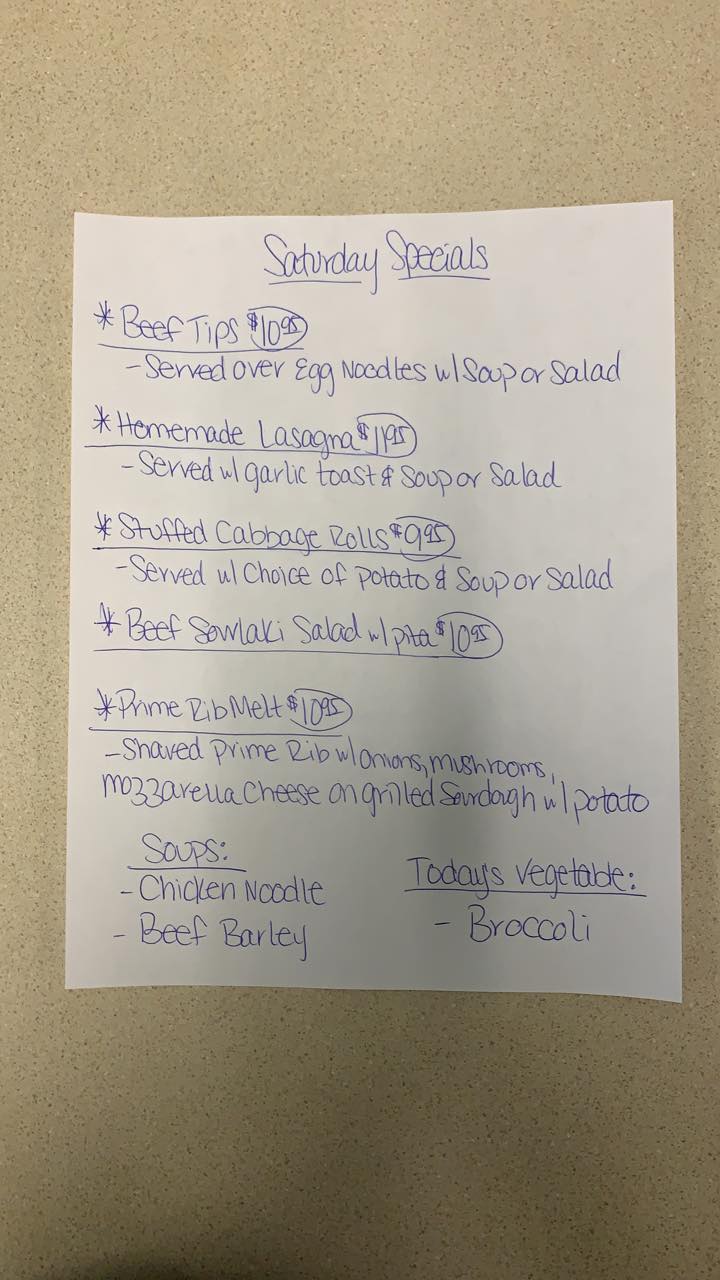 Saturday Specials
* Beef Tips $10.95
- Served over Egg Noodles w/ Soup or Salad
* Homemade Lasagna $11.95
- Served w/ garlic toast & Soup or Salad
* Stuffed Cabbage Rolls $9.95
- Served w/ Choice of potato & Soup or Salad
* Beef Sovlaki Salad w/ pita $10.95
* Prime Rib Melt $10.95
- Shaved Prime Rib w/ onions, mushrooms,
mozzarella Cheese on grilled Sourdough w/ potato
Soups:
- Chicken Noodle
- Beef Barley
Today's Vegetable:
- Broccoli